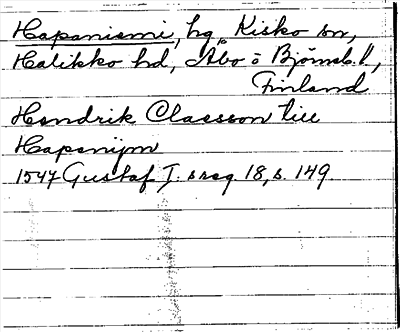 Hapaniemi, hg, Kisko sn,
Halikko hd, Åbo o Björneb. l.,
Finland
Hendrik Classon till
Hapanijm
1547 Gustaf I. s reg. 18, s. 149